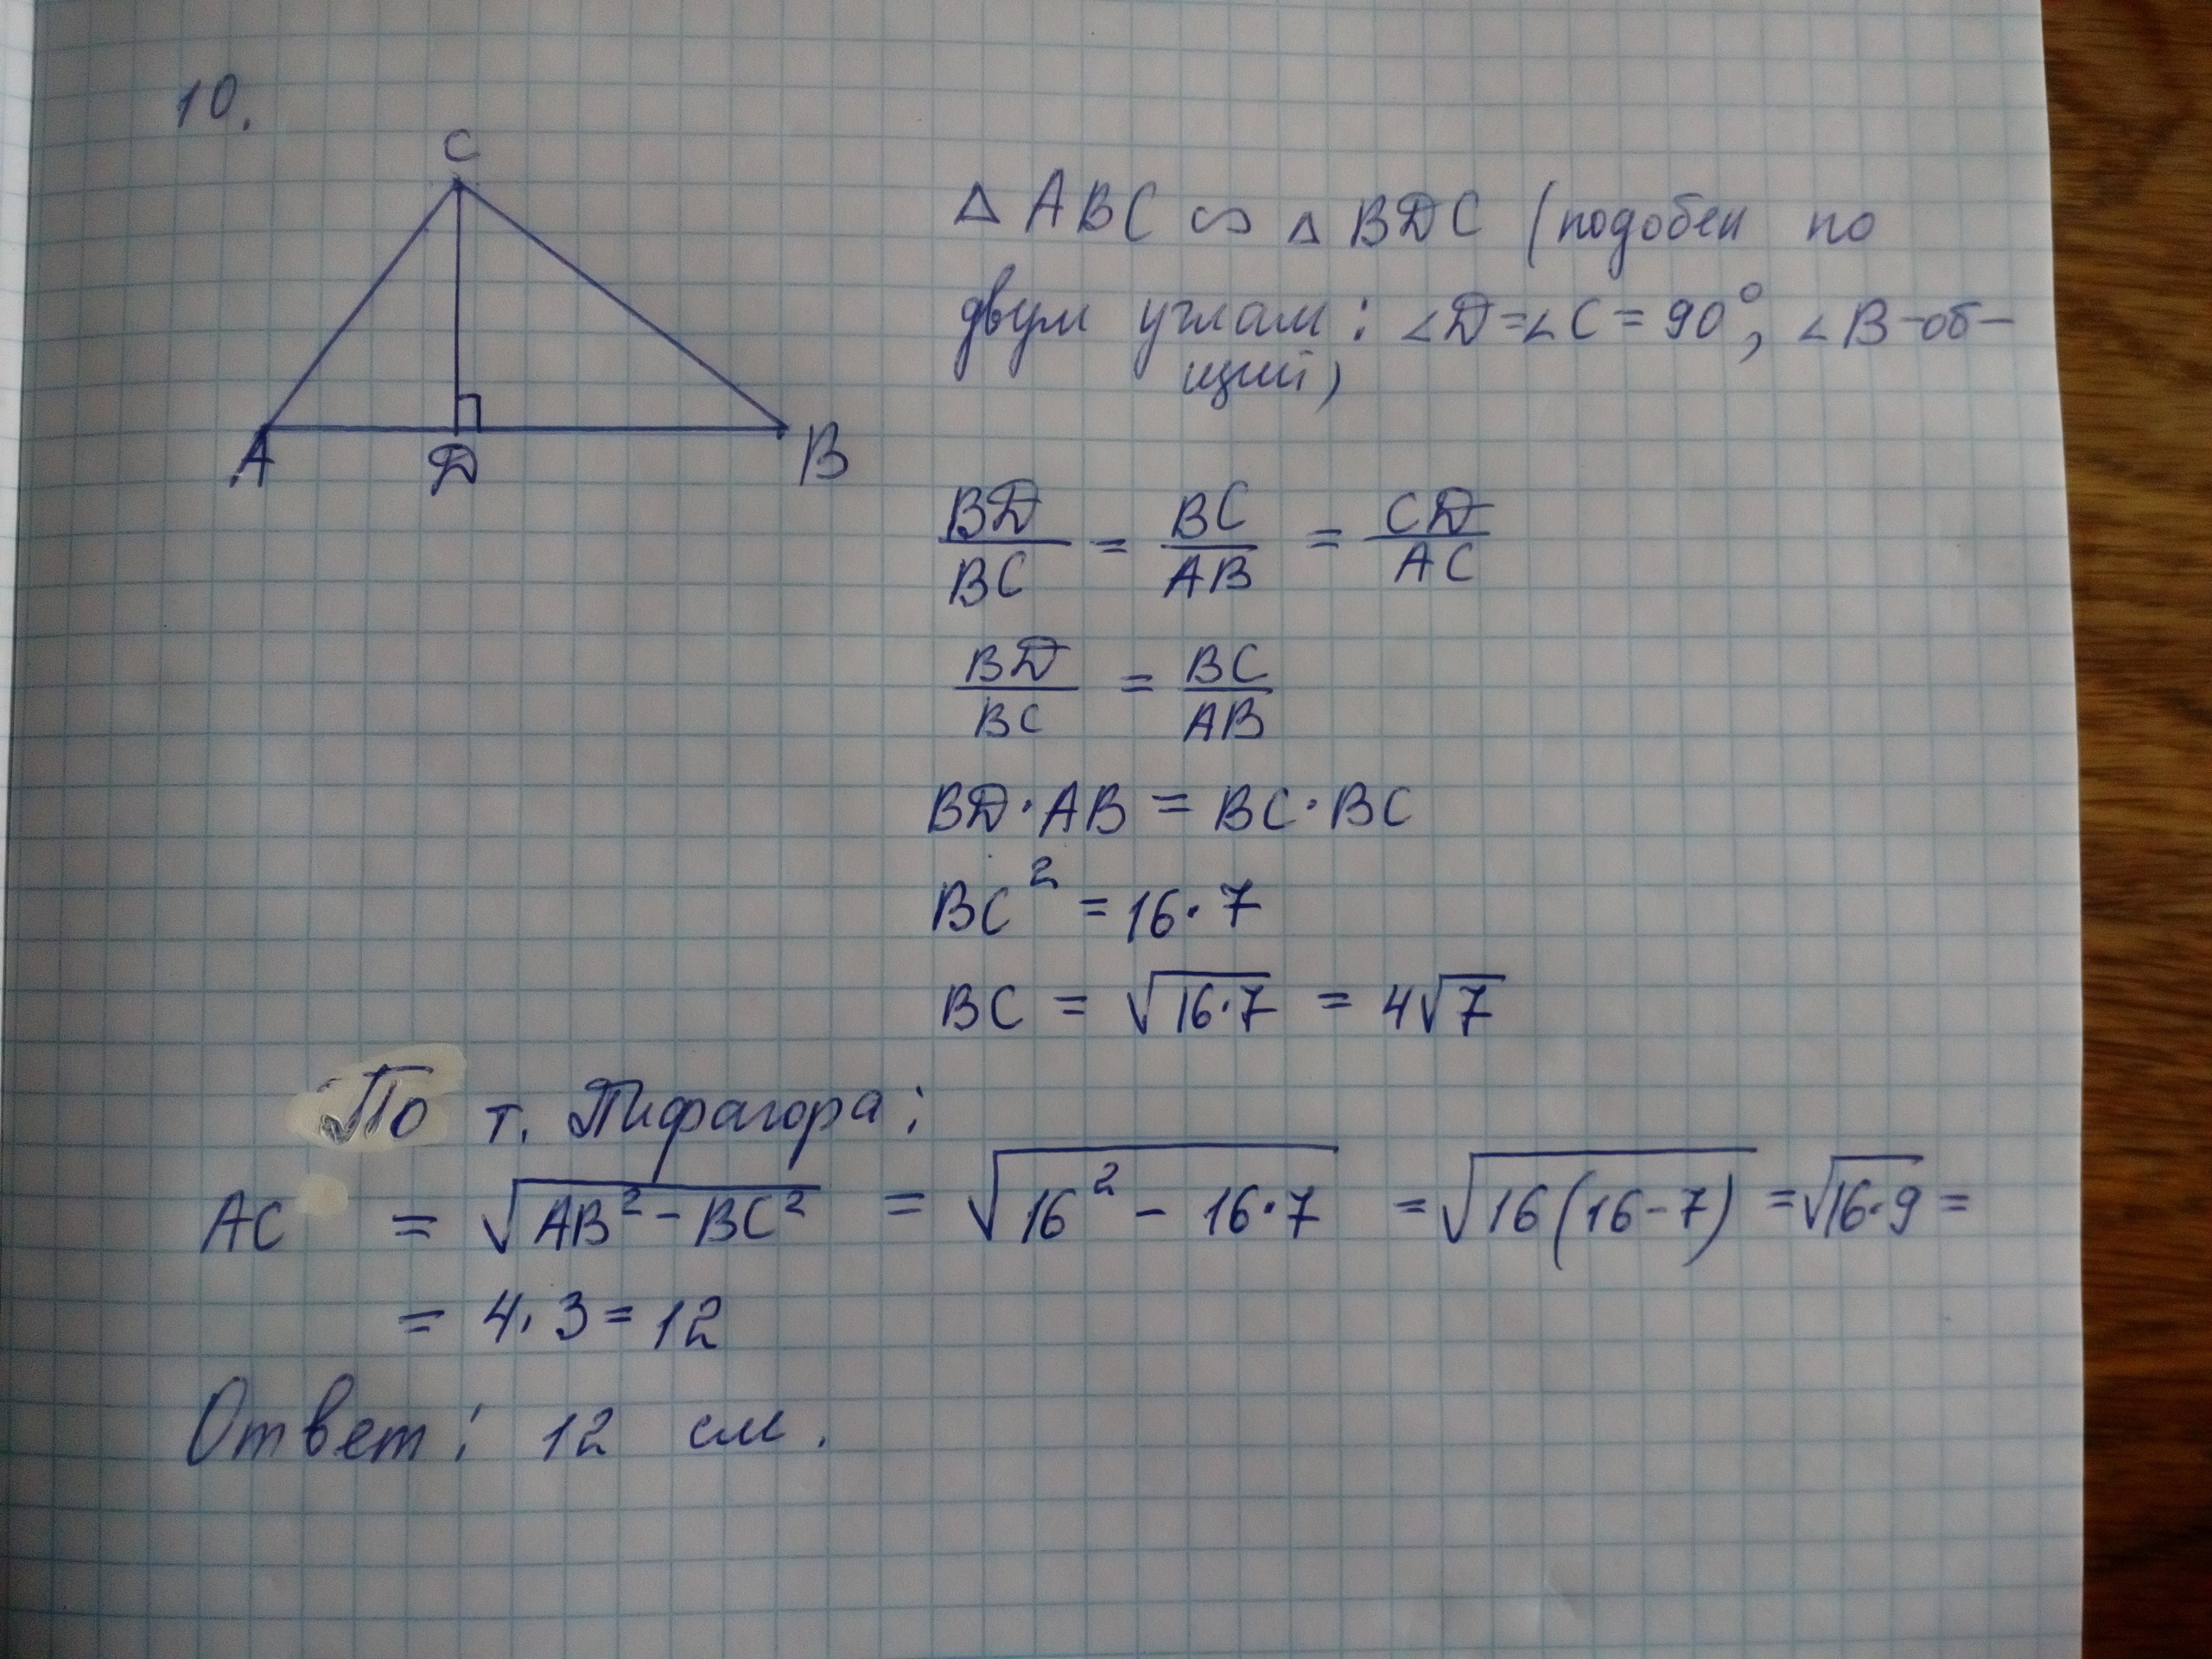 10.
C
A
D
B
△ ABC ∽ △ BDC (подобен по
двум углам: ∠D=∠C=90°, ∠B-об-
щий)
BD/BC = BC/AB = CD/AC
BD/BC = BC/AB
BD·AB = BC·BC
BC² = 16·7
BC = √16·7 = 4√7
По т. Пифагора:
AC = √AB²-BC² = √16² - 16·7 = √16(16-7) = √16·9 =
= 4·3=12
Ответ: 12 см.